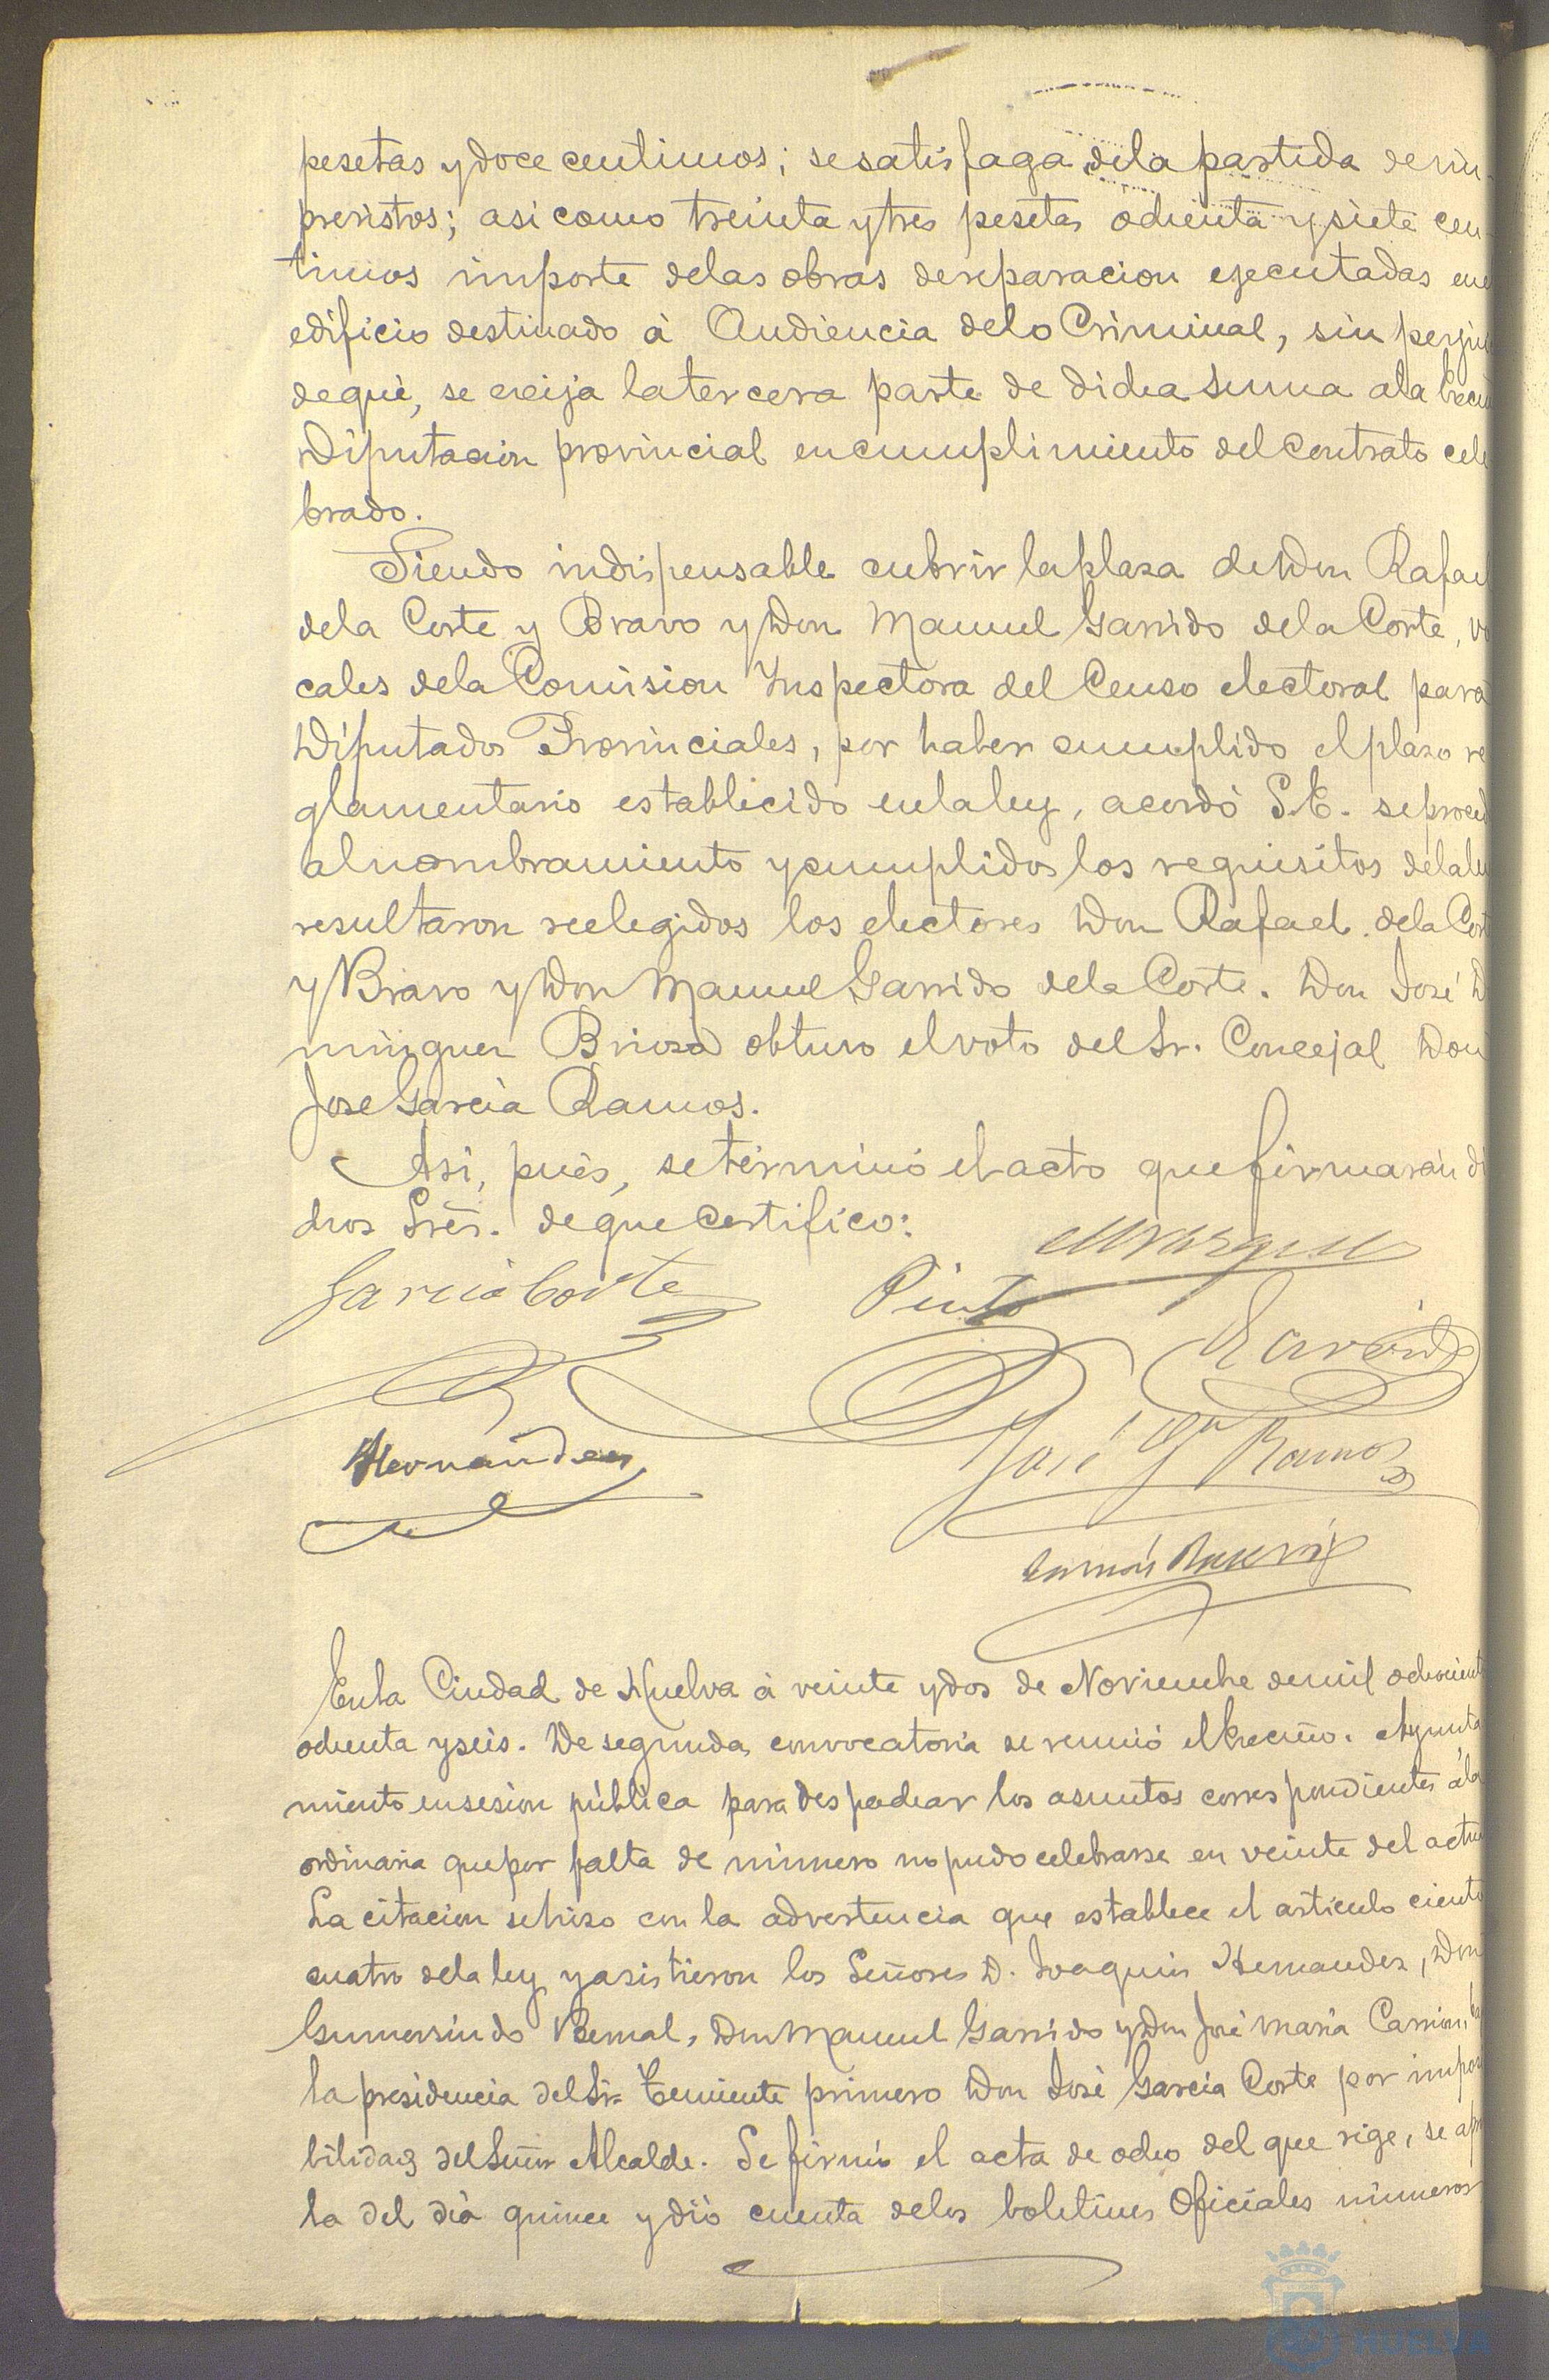 pesetas y doce centimos; se satisfaga de la partida de im-
previstos; asi como treinta y tres pesetas ochenta y siete cen-
timos importe de las obras de reparacion ejecutadas en e
edificio destinado á Audiencia de lo Criminal, sin perjui
de que, se exija la tercera parte de dicha suma a la Excm
Diputacion provincial en cumplimiento del contrato cele
brado.
Siendo indispensable cubrir la plaza de Don Rafael
de la Corte y Bravo y Don Manuel Garrido de la Corte, vo
cales de la Comision Inspectora del Censo electoral para
Diputados Provinciales, por haber cumplido el plazo re
glamentario establecido en la ley, acordó S.E. se proced
al nombramiento y cumplidos los requisitos de la ley
resultaron reelegidos los electores Don Rafael de la Cort
y Bravo y Don Manuel Garrido de la Corte. Don José D
minguez Brioso obtuvo el voto del Sr. Concejal Don
José García Ramos.
Asi, pués, se términó el acto que firmarán di
chos Srés. de que certifico:
M Vazquez
García Corte Pinto
Garrido
Hernandez José Ga Ramos
En la Ciudad de Huelva á veinte y dos de Noviembre de mil ochocient
ochenta y seis. De segunda convocatoria se reunió el Excmo. Ayunta
miento en sesion pública para despachar los asuntos correspondientes á la
ordinaria que por falta de número no pudo celebrarse en veinte del actu
La citacion se hizo con la advertencia que establece el articulo ciento
cuatro de la ley y asistieron los Señores D. Joaquin Hernandez, Don
Gumersindo Bernal, Don Manuel Garrido y Don José Maria Carrion, ba
la presidencia del Sr. Teniente primero Don José García Corte por impos
bilidad del Señor Alcalde. Se firmó el acta de ocho del que rige, se apr
la del dia quince y dió cuenta de los boletines Oficiales números
HUELVA